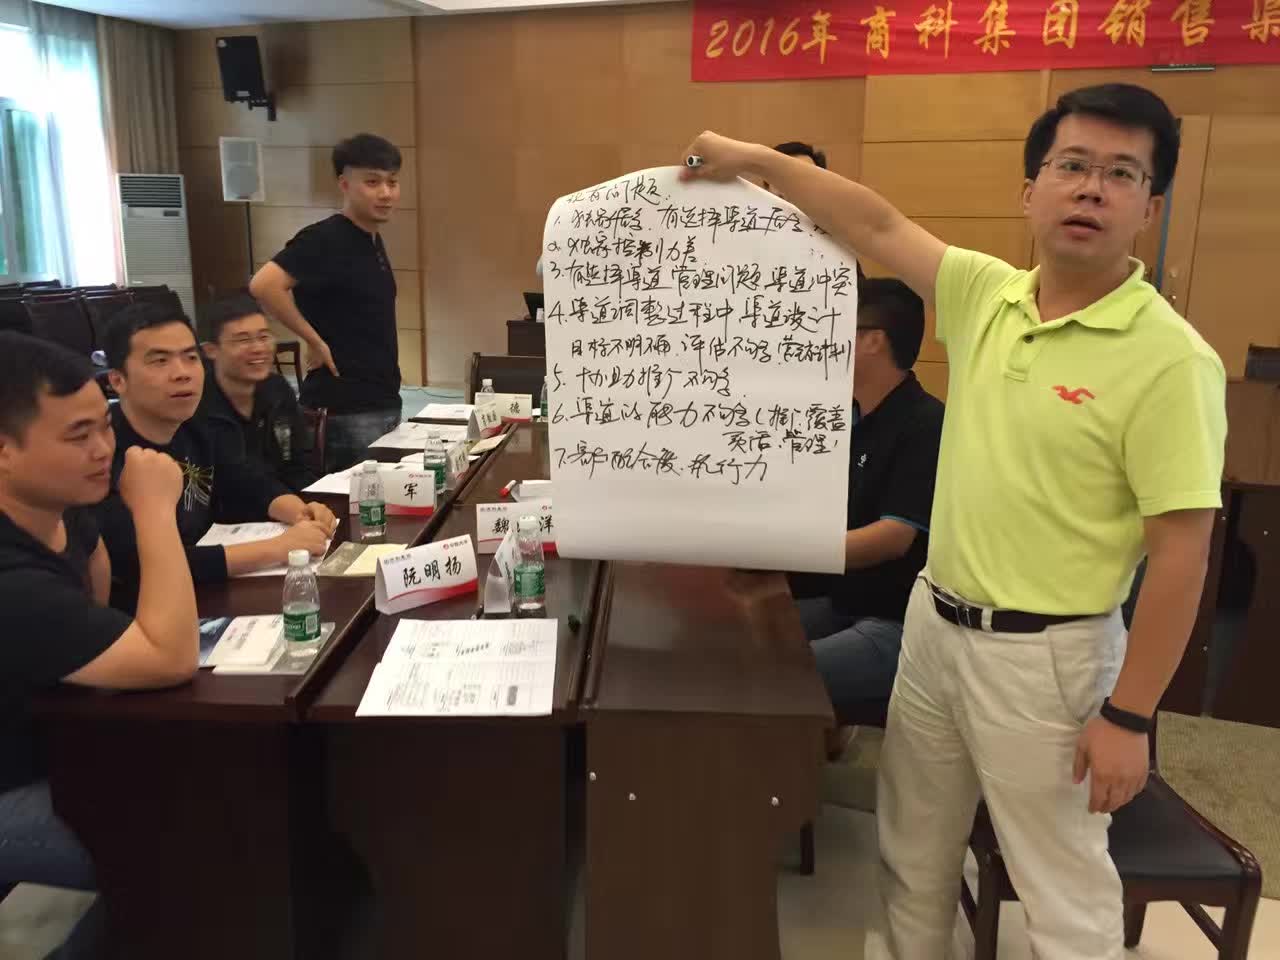 2016年商科集团销售渠
现有问题.
1. 独家居多, 有选择渠道居多.
2. 独家控制力差
3. 有选择渠道管理问题 渠道冲突
4. 渠道调整过程中, 渠道设计
目标不明确, 评估不够, 营销计划
5. 协助推广不够
6. 渠道的能力不够(推广, 覆盖
灵活, 管理,
7. 配合度. 执行力
德
军
魏 洋
阮明扬